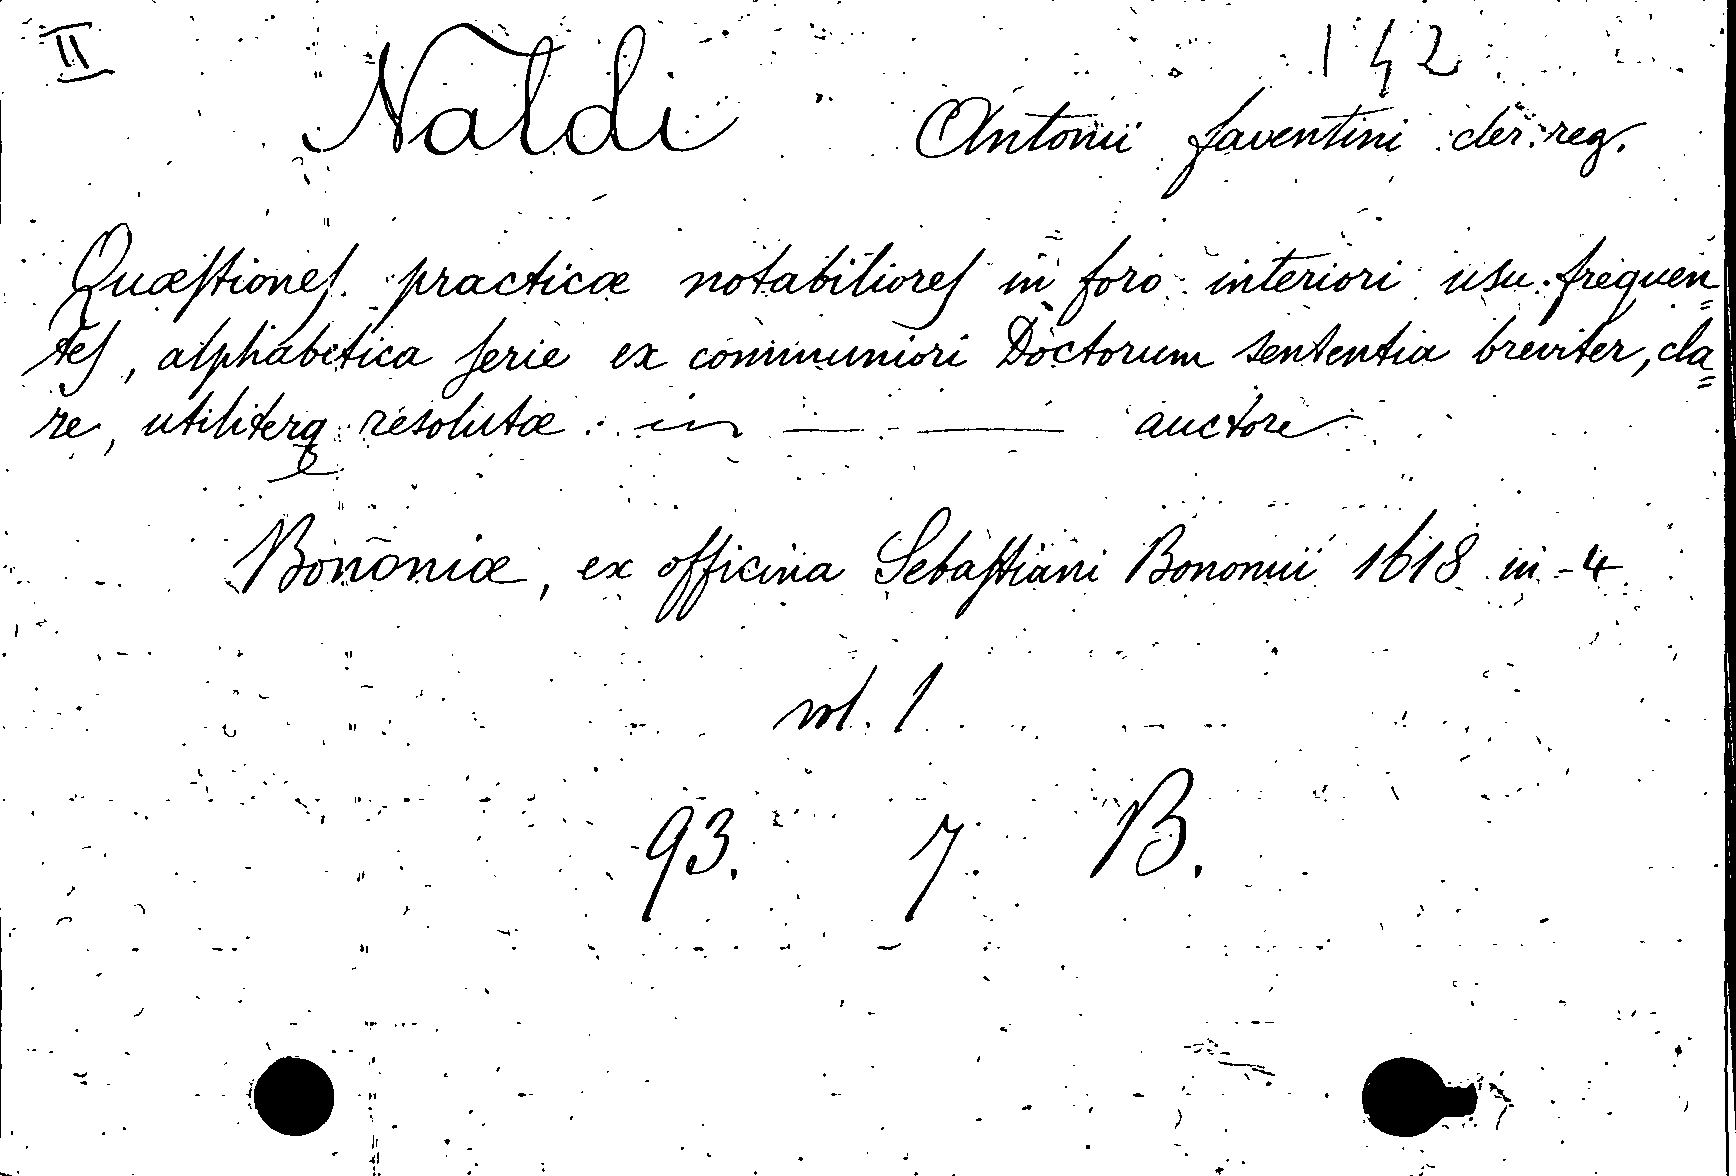 II 142
Naldi Antonii faventini cler. reg.
Quæſtioneſ practicæ notabilioreſ in foro interiori usu frequen=
teſ, alphabetica ſerie ex communiori Doctorum sententia breviter, cla=
re, utiliterq resolutæ in — — auctore
Bononiæ, ex officina Sebaſtiani Bonomii 1618 in-4
vol. 1
93. 7. B.